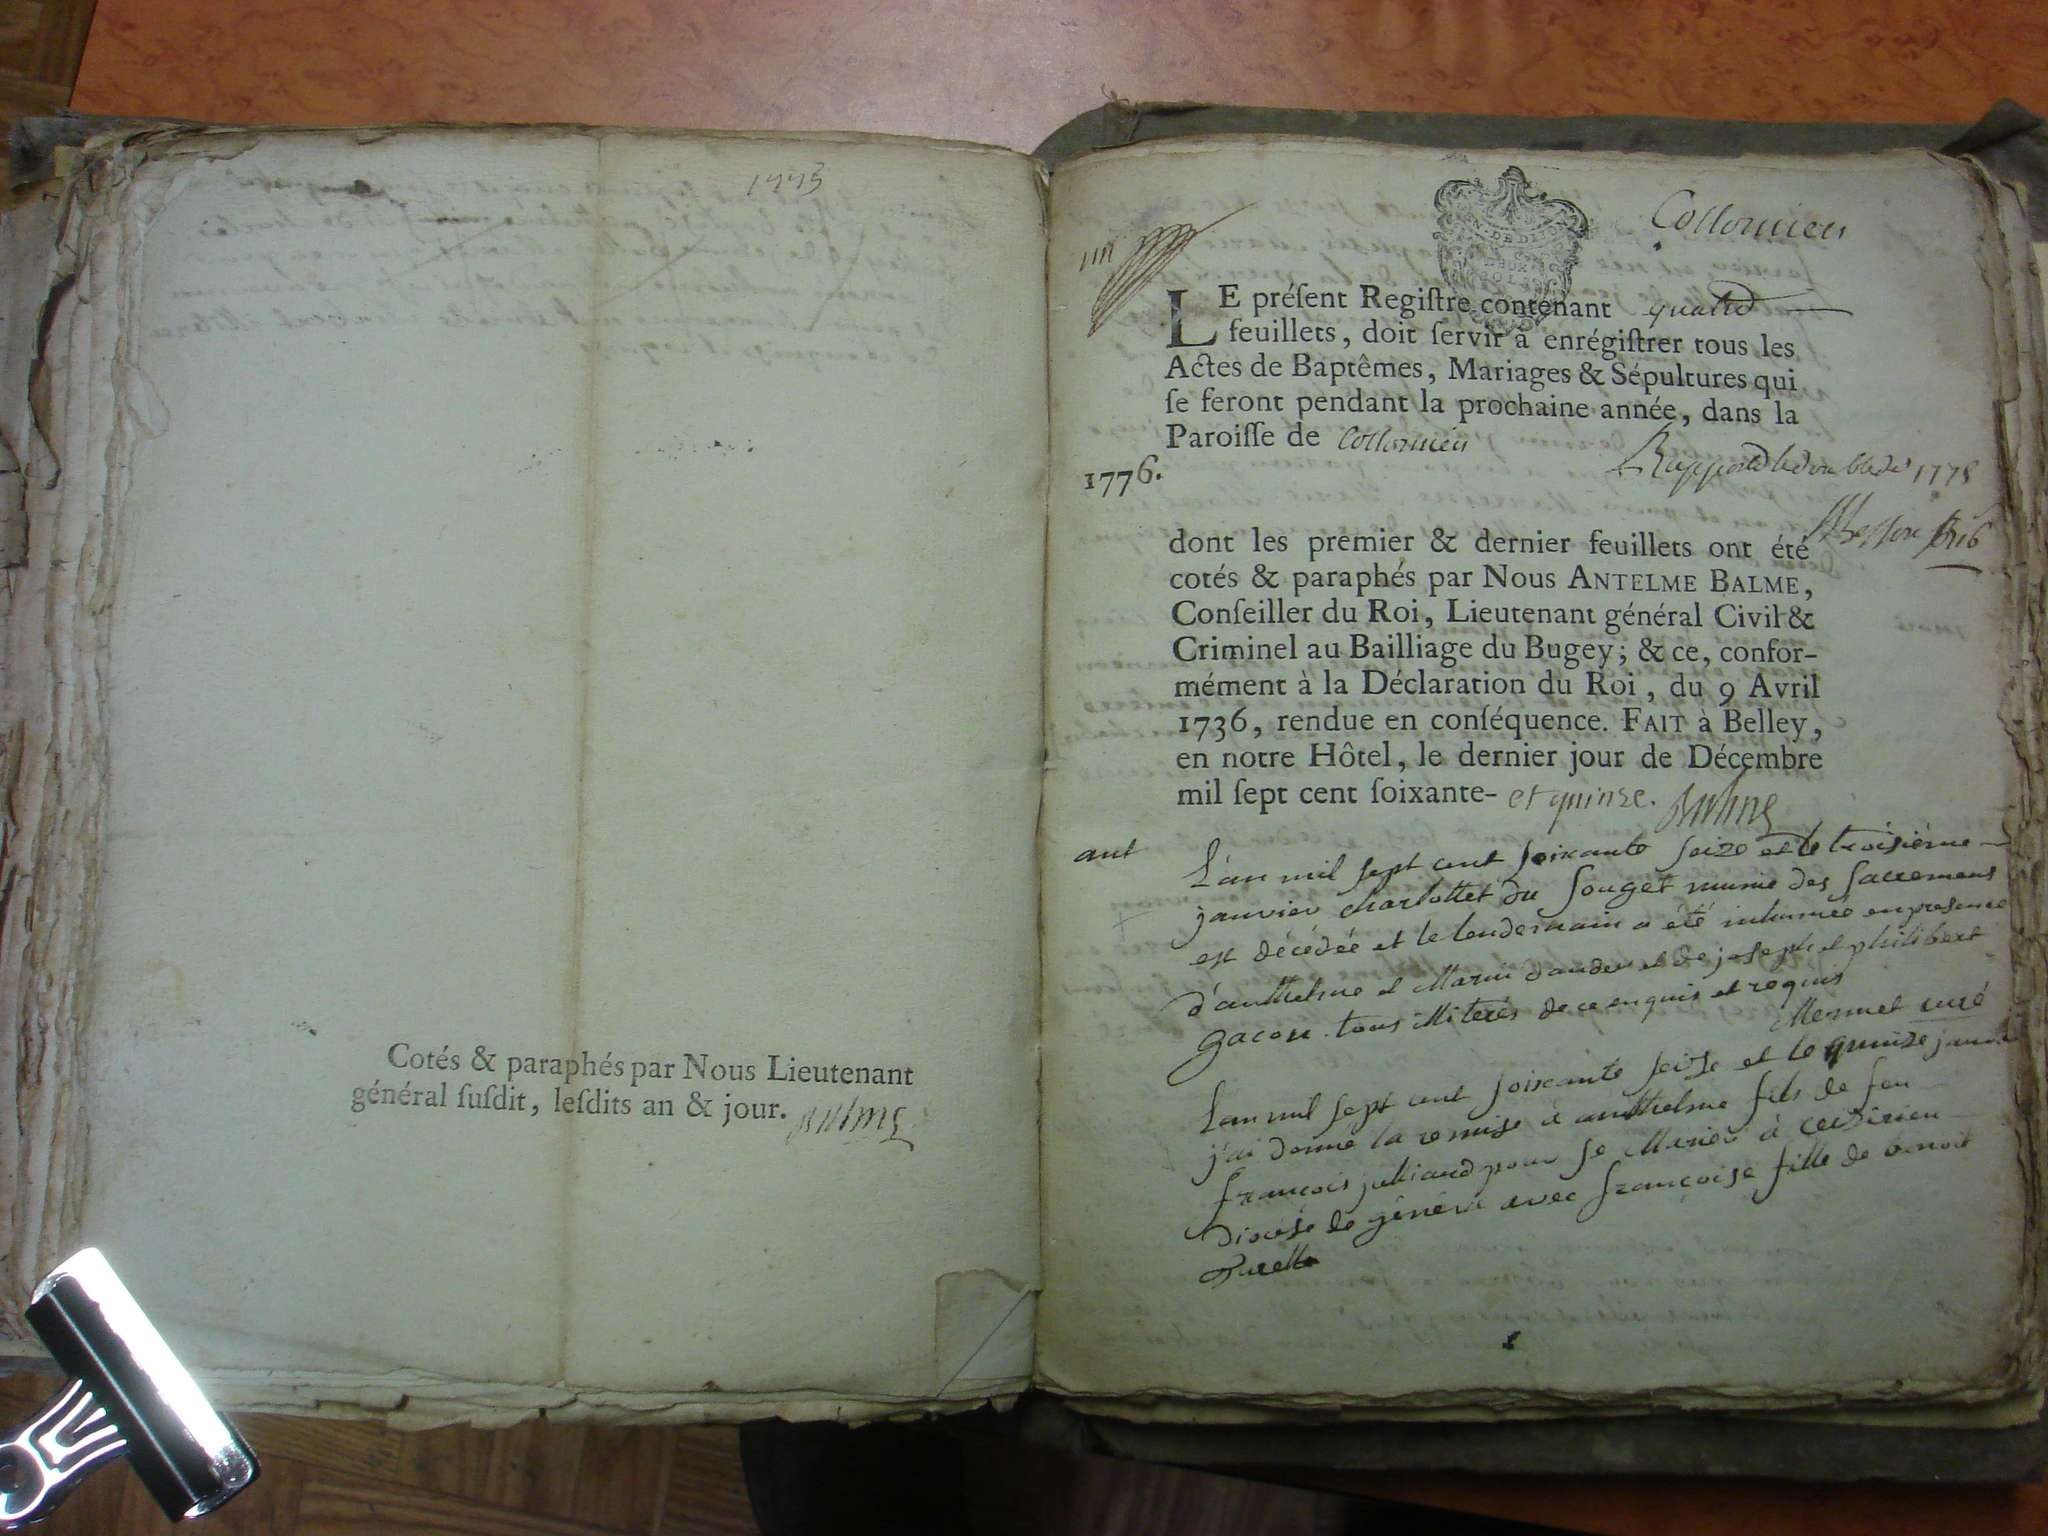 1775
Cotés & paraphés par Nous Lieutenant
général ſuſdit, leſdits an & jour. Balme
Collomieu
LE préſent Regiſtre contenant quatre
feuillets, doit ſervir à enrégiſtrer tous les
Actes de Baptêmes, Mariages & Sépultures qui
ſe feront pendant la prochaine année, dans la
Paroiſſe de Collomieu
1776.
Rapporté le double de 1775
dont les premier & dernier feuillets ont été
cotés & paraphés par Nous ANTELME BALME,
Conſeiller du Roi, Lieutenant général Civil &
Criminel au Bailliage du Bugey; & ce, confor-
mément à la Déclaration du Roi, du 9 Avril
1736, rendue en conſéquence. FAIT à Belley,
en notre Hôtel, le dernier jour de Décembre
mil ſept cent ſoixante- et quinze. Balme
L'an mil sept cent soixante seize et le troisième
janvier charlotte du souget munie des sacremens
est décédée et le lendemain a été inhumée en presence
d'anthelme et Marin dauder et de joseph et philibert
gacon tous illiterés de ce enquis et requis
Mermet curé
L'an mil sept cent soixante seize et le quinze janvier
j'ai donné la remise à anthelme fils de feu
françois julliand pour se Marier à Ceizirieu
Diocése de géneve avec françoise fille de benoit